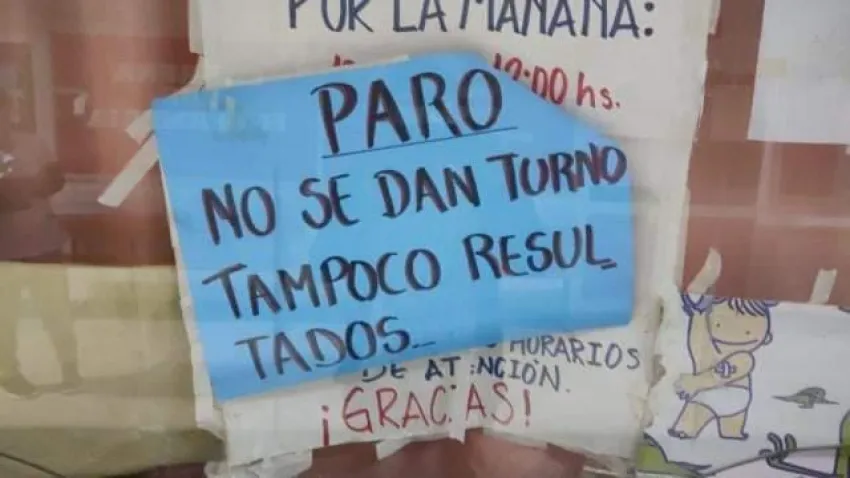 POR LA MAÑANA:
12:00 hs.
PARO
NO SE DAN TURNO
TAMPOCO RESUL_
TADOS_
HORARIOS
DE ATENCIÓN.
¡GRACIAS!